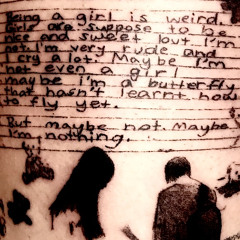 Being a girl is weird.
Girls are suppose to be
nice and sweet but I'm
not. I'm very rude and
I cry a lot. Maybe I'm
not even a girl
maybe I'm a butterfly
that hasn't learnt how
to fly yet.
But maybe not. Maybe
I'm nothing.